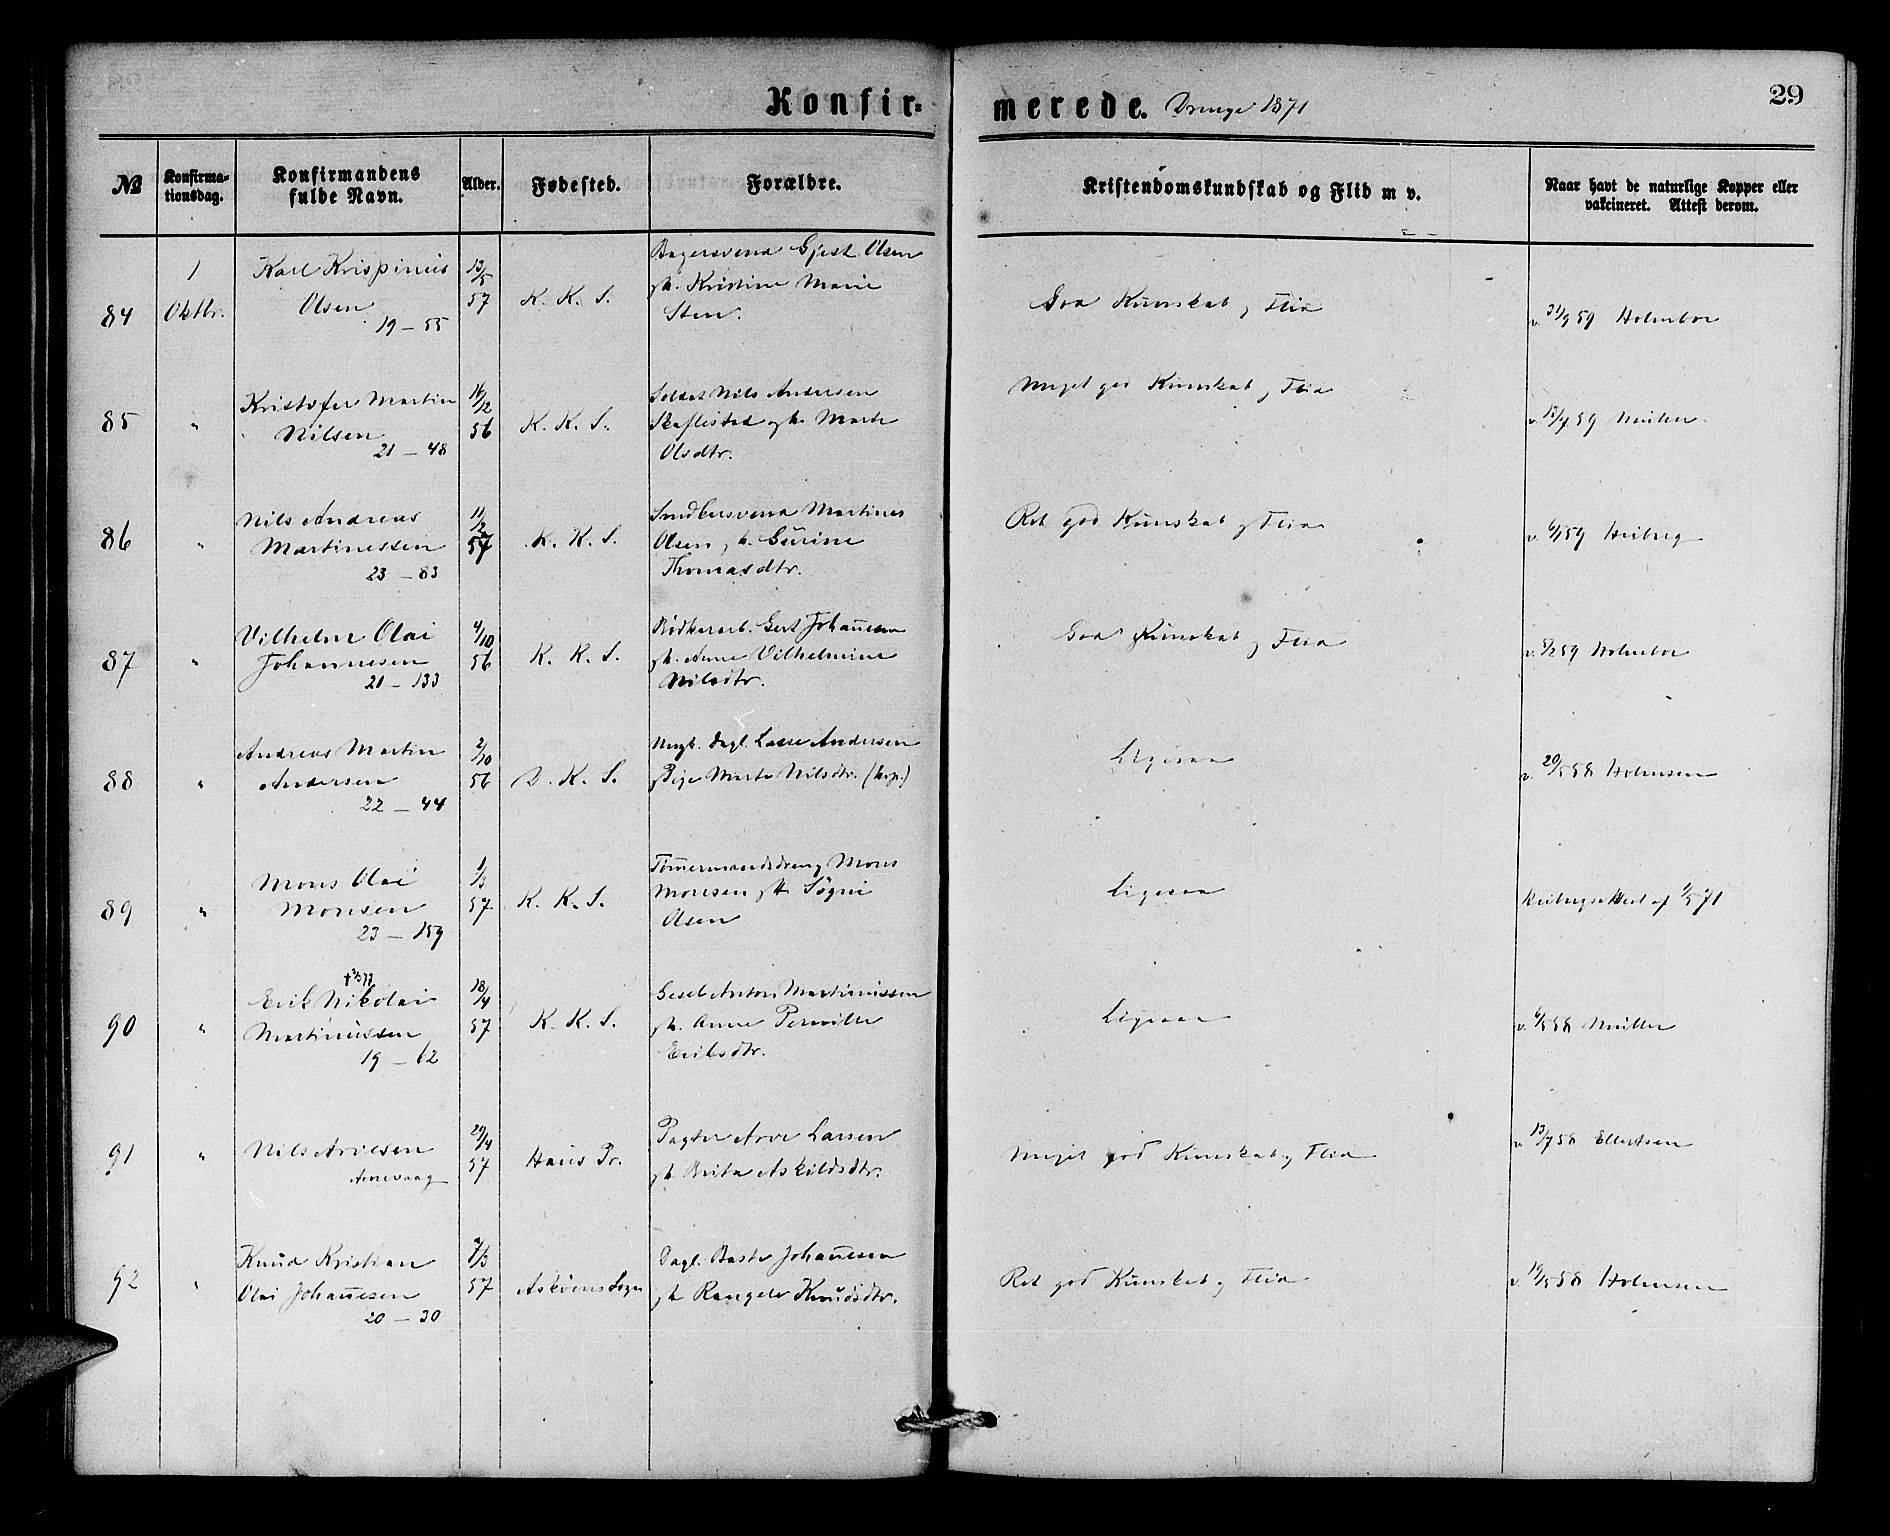 Konfir-
merede. Drenge 1871
29
№
Konfirma-
tionsdag.
Konfirmandens
fulde Navn.
Alder.
Fødested.
Forældre.
Kristendomskundskab og Flid m v.
Naar havt de naturlige Kopper eller
vakcineret. Attest derom.
84
1
Oktbr.
Karl Krispinus
Olsen
19 - 55
13/5
57
K. K. S.
Bagersvend Gjest Olsen
og h. Kristine Marie
Sten.
God Kunskab og Flid
v. 9 59 Holmboe
85
"
Kristofer Martin
Nilsen
21 - 48
16/12
56
K. K. S.
Soldat Nils Andersen
Skaflestad og h. Marte
Olsdtr.
Meget god Kunskab og Flid
v. 59 Müller
86
"
Nils Andreas
Martinussen
23 - 83
11/2
57
K. K. S.
Smedesvend Martinus
Olsen og h. Gurine
Thomasdtr.
Ret god Kunskab og Flid
v. 6/1 59 Heiberg
87
"
Vilhelm Olai
Johannesen
21 - 133
4/10
56
K. K. S.
Bødkerarb. Gert Johannesen
og h. Anne Vilhelmine
Nilsdtr.
God Kunskab og Flid
v. 8/2 59 Holmboe
88
"
Andreas Martin
Andersen
22 - 44
2/10
56
D. K. S.
Ungk. Dagl. Lasse Andersen
og Pige Marte Nilsdtr. (kop.)
Ligesaa
v. 20/5 58 Holmsen
89
"
Mons Olai
Monsen
23 - 159
1/3
57
K. K. S.
Tømermandsdreng Mons
Monsen og h. Søgni
Olsen
Ligesaa
Heibergs Attest af 2/5 71
90
"
Erik Nikolai
Martinussen
19 - 62
18/4
57
K. K. S.
Gesel Anton Martinussen
og h. Anne Pernille
Eriksdtr.
Ligesaa
v. 6/5 58 Müller
91
"
Nils Arvesen
Arnevaag
29/4
57
Haus Pr.
Pagter Arve Larsen
og h. Brita Askildsdtr.
Meget god Kunskab og Flid
v. 13/7 58 Ellertsen
92
"
Knud Kristian
Olai Johannesen
20 - 30
7/3
57
Askøens Sogn
Dagl. Baste Johannesen
og h. Rangele Knudsdtr.
Ret god Kunskab og Flid
v. 19/5 58 Holmsen